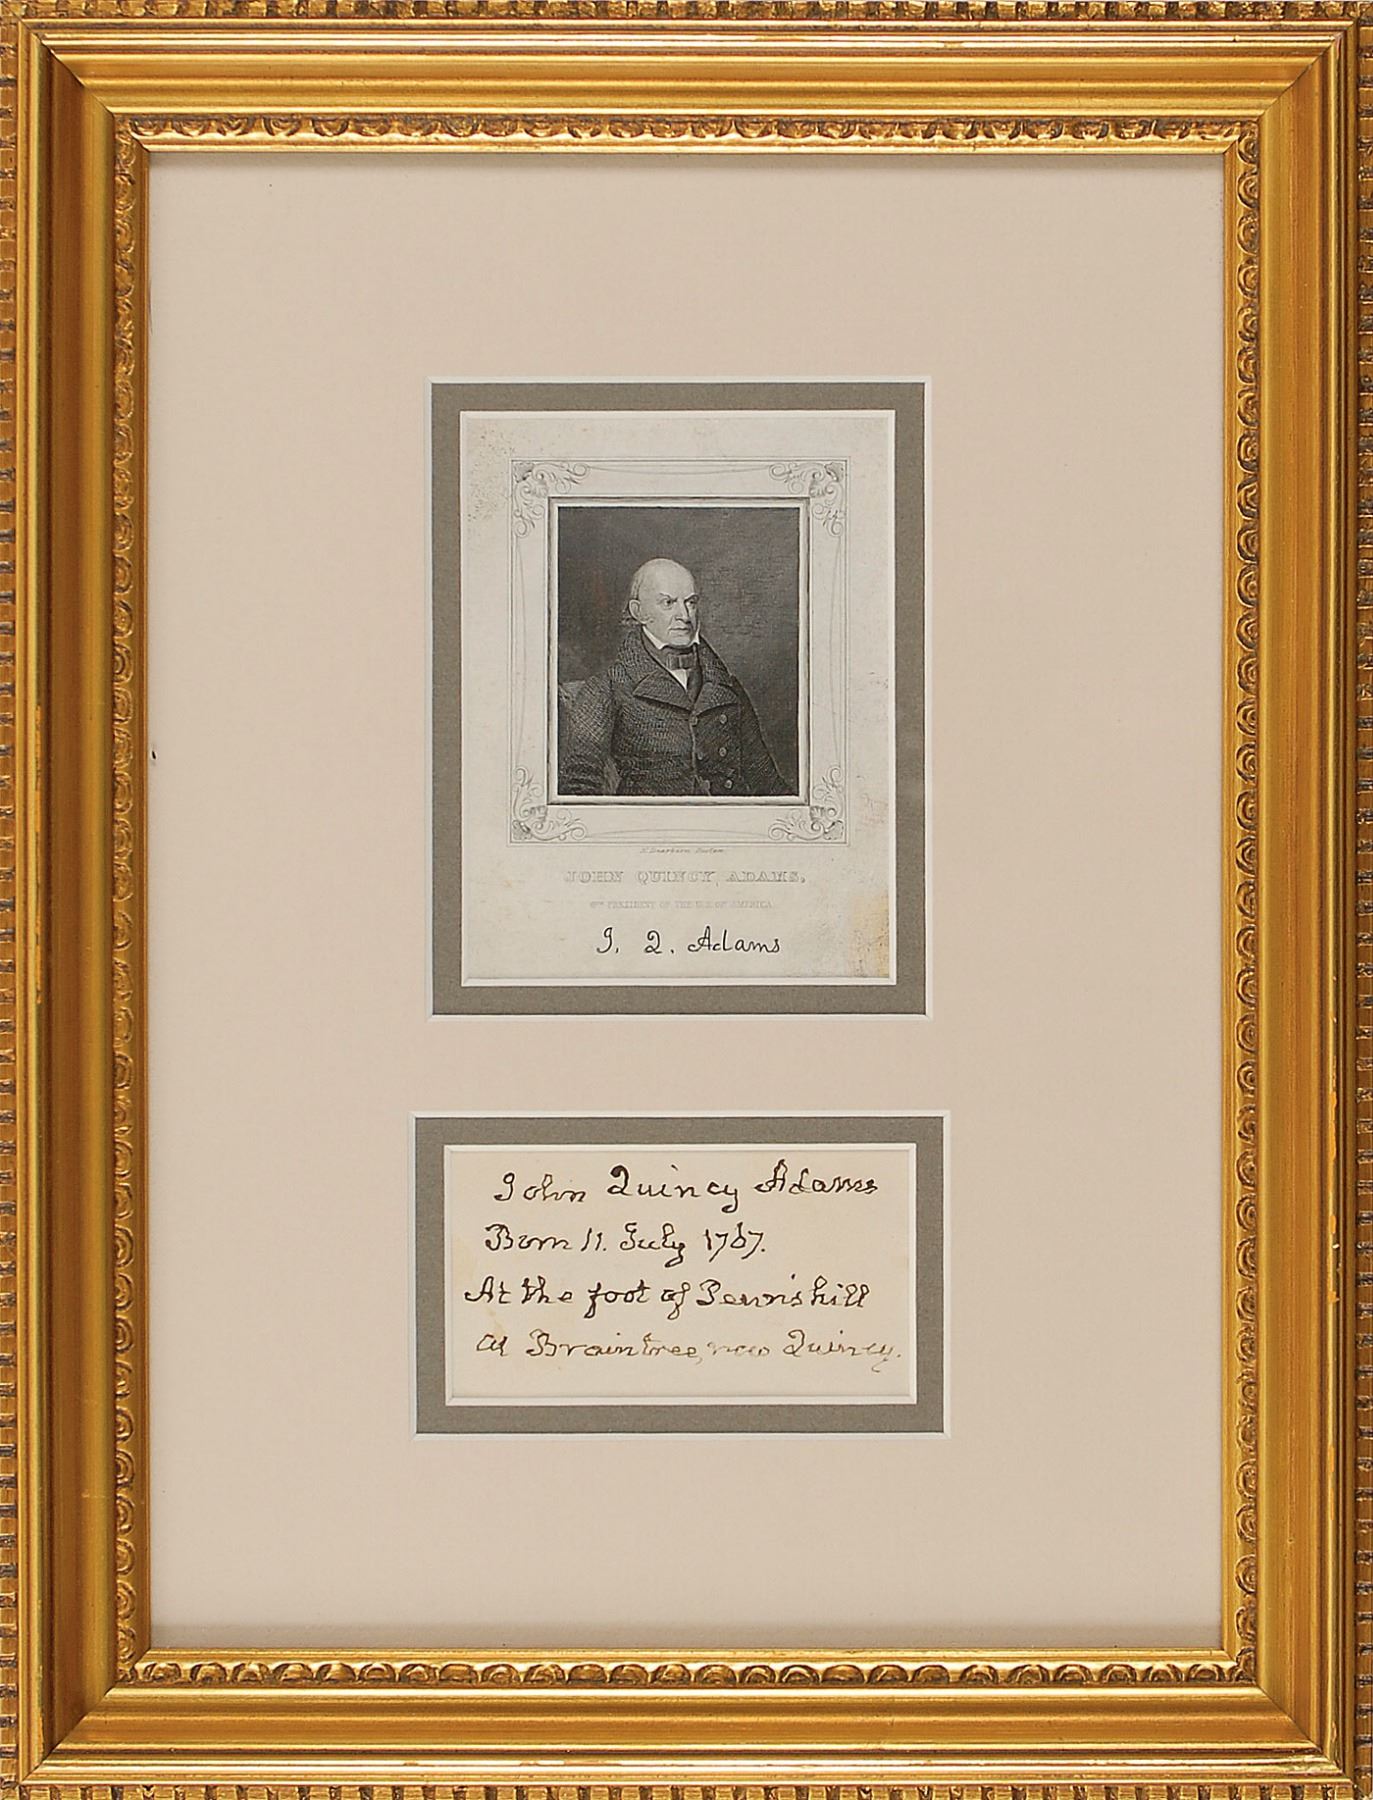 N. Dearborn Boston
JOHN QUINCY ADAMS,
6TH PRESIDENT OF THE U.S. OF AMERICA.
J. Q. Adams
John Quincy Adams
Born 11. July 1767.
At the foot of Penn's hill
at Braintree, now Quincy.